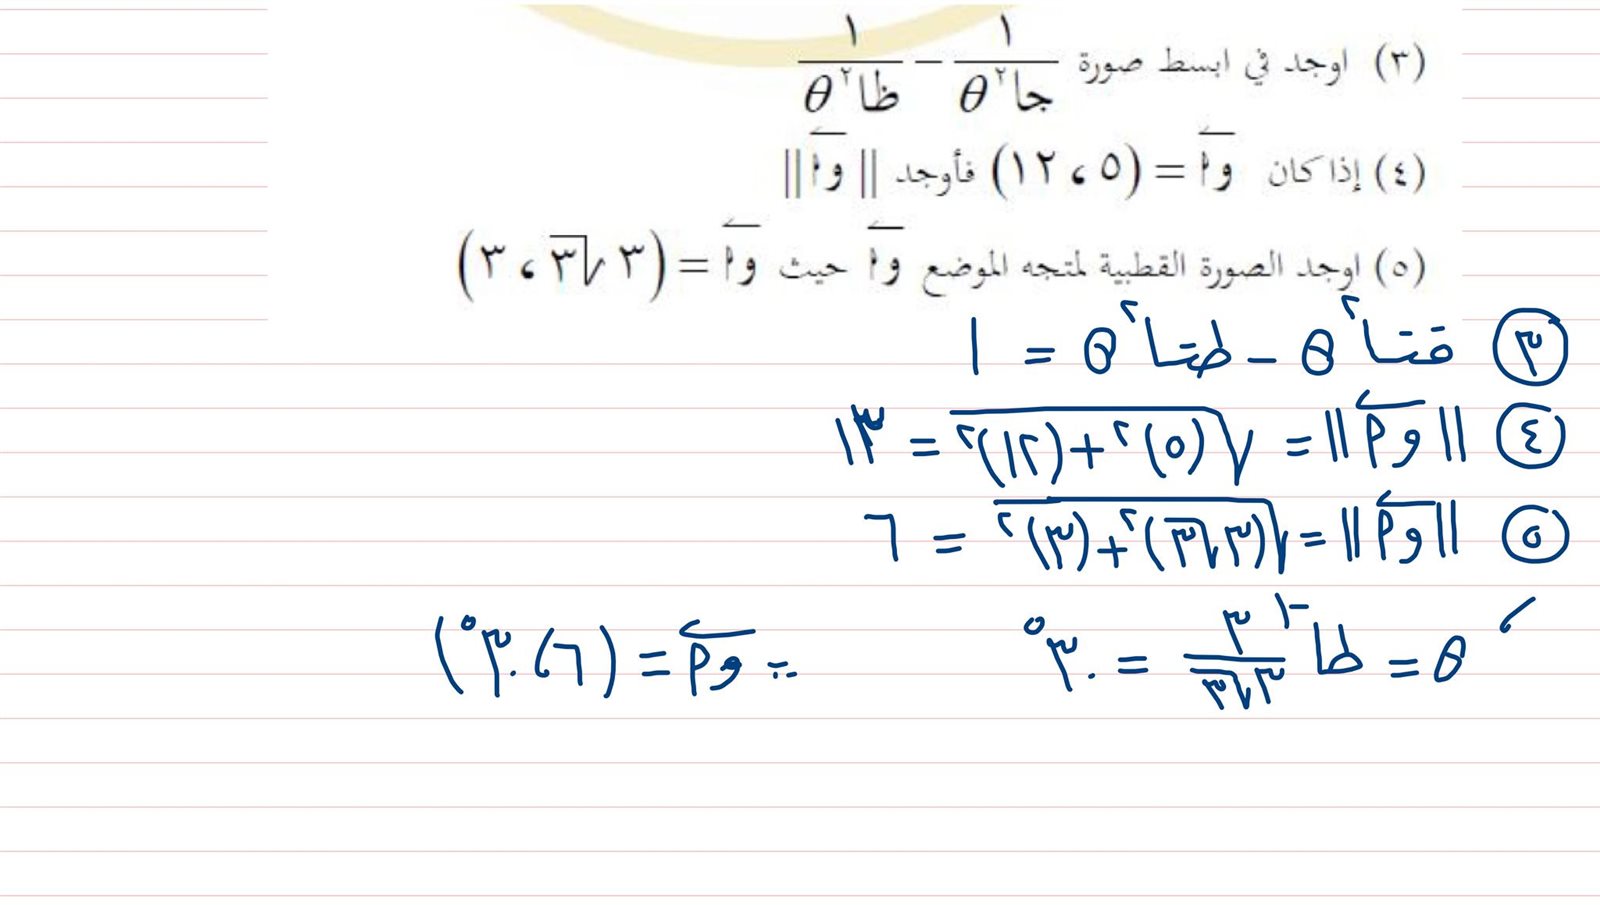 (٣) اوجد في ابسط صورة ١/جا٢θ − ١/ظا٢θ
(٤) إذا كان و١ = (٥ ، ١٢) فأوجد || و١ ||
(٥) اوجد الصورة القطبية لمتجه الموضع و١ حيث و١ = (٣√٣ ، ٣)
٣ قتا٢θ − ظتا٢θ = ١
٤ || و٢ || = √(٥)٢+(١٢)٢ = ١٣
٥ || و٢ || = √(٣√٣)٢+(٣)٢ = ٦
θ = ظا−١ ٣/٣√٣ = ٣٠° ∴ و٢ = (٦ ، ٣٠°)